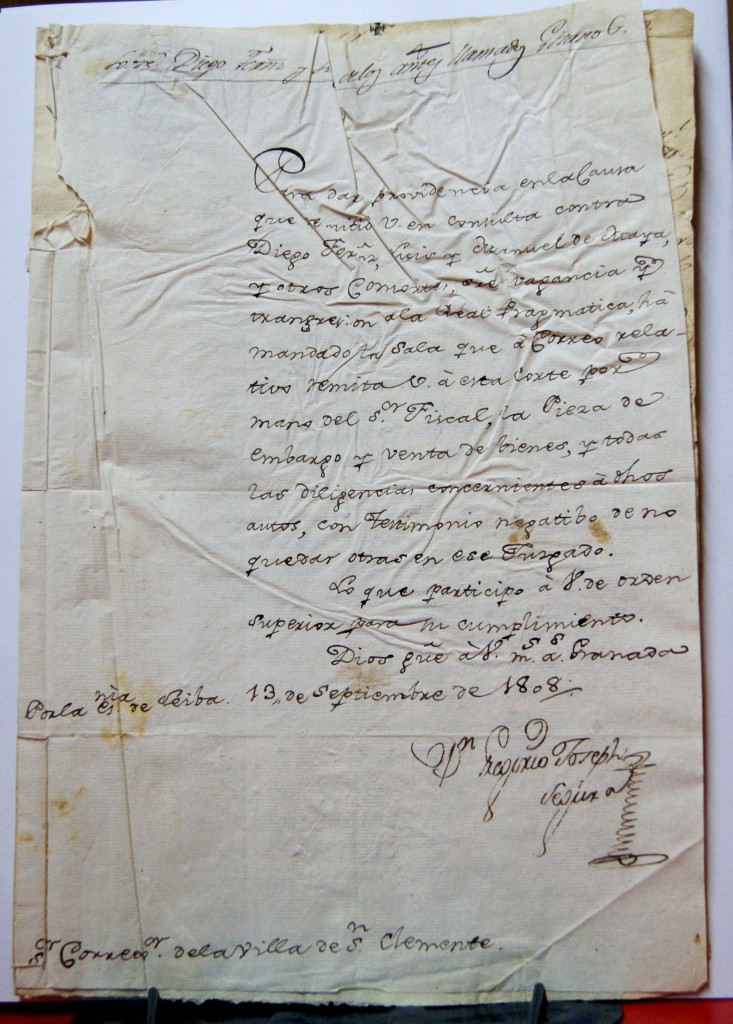 Sor͞e Diego Fern.z y de los antes llamados Gitano G.
Para dar providencia en la Causa
que remitió V. en Consulta contra
Diego Fern.z, Luis y Manuel de Amaya,
y otros Consortes, sr͞e vagancia y
trangresion a la Real Pragmatica, há
mandado la Sala que à Correo rela-
tivo remita V. à esta Corte por
mano del S.or Fiscal, la Pieza de
embargo y venta de bienes, y todas
las diligencias concernientes à dhos
autos, con Testimonio negatibo de no
quedar otras en ese Juzgado.
Lo que participo à V. de orden
superior para su cumplimiento.
Dios gu͞e à V. m.s a.s Granada
Por la es.nia de Leiba. 13,, de Septiembre de 1808.
D.n Joseph
Segura
S.or Correg.or de la Villa de S.n Clemente.